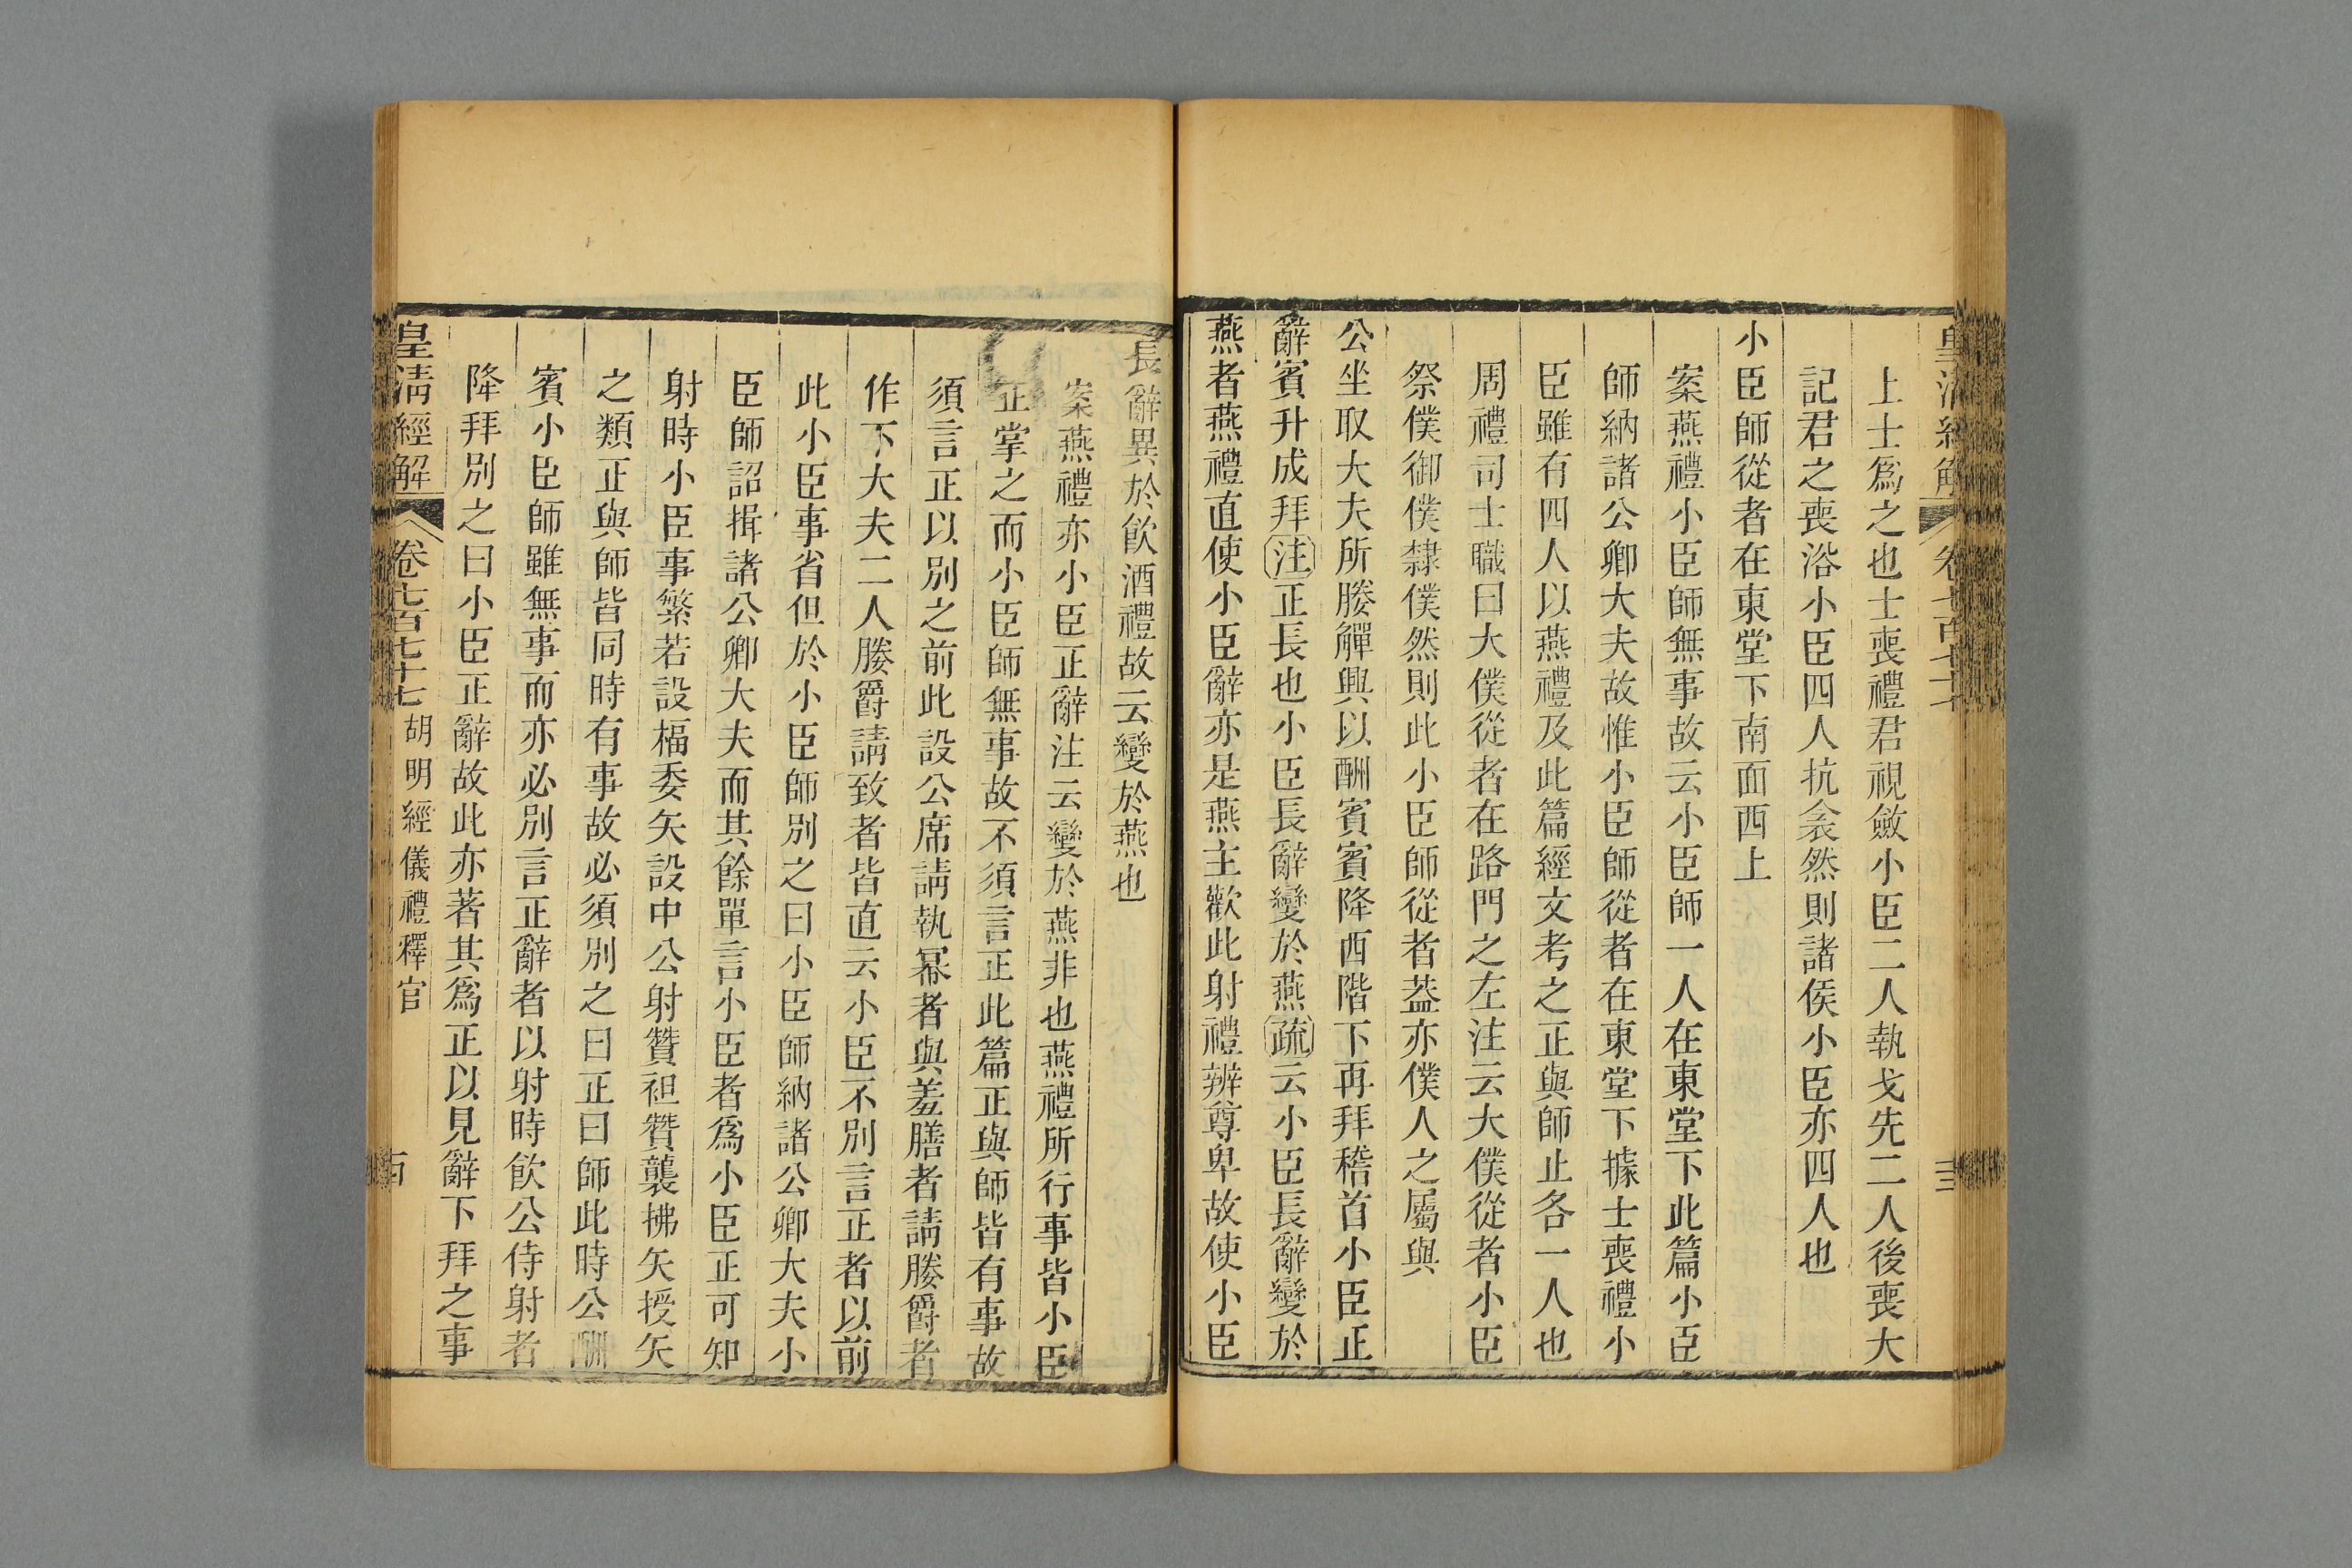 皇清經解 卷七百七十七 三
上士爲之也士喪禮君視斂小臣二人執戈先二人後喪大
記君之喪浴小臣四人抗衾然則諸侯小臣亦四人也
小臣師從者在東堂下南面西上
案燕禮小臣師無事故云小臣師一人在東堂下此篇小臣
師納諸公卿大夫故惟小臣師從者在東堂下據士喪禮小
臣雖有四人以燕禮及此篇經文考之正與師止各一人也
周禮司士職曰大僕從者在路門之左注云大僕從者小臣
祭僕御僕隸僕然則此小臣師從者葢亦僕人之屬與
公坐取大夫所媵觶興以酬賓賓降西階下再拜稽首小臣正
辭賓升成拜注正長也小臣長辭變於燕疏云小臣長辭變於
燕者燕禮直使小臣辭亦是燕主歡此射禮辨尊卑故使小臣
長辭異於飮酒禮故云變於燕也
案燕禮亦小臣正辭注云變於燕非也燕禮所行事皆小臣
正掌之而小臣師無事故不須言正此篇正與師皆有事故
須言正以別之前此設公席請執冪者與羞膳者請媵爵者
作下大夫二人媵爵請致者皆直云小臣不別言正者以前
此小臣事省但於小臣師別之曰小臣師納諸公卿大夫小
臣師詔揖諸公卿大夫而其餘單言小臣者爲小臣正可知
射時小臣事繁若設楅委矢設中公射贊袒贊襲拂矢授矢
之類正與師皆同時有事故必須別之曰正曰師此時公酬
賓小臣師雖無事而亦必別言正辭者以射時飮公侍射者
降拜別之曰小臣正辭故此亦著其爲正以見辭下拜之事
皇清經解 卷七百七十七 胡明經儀禮釋官